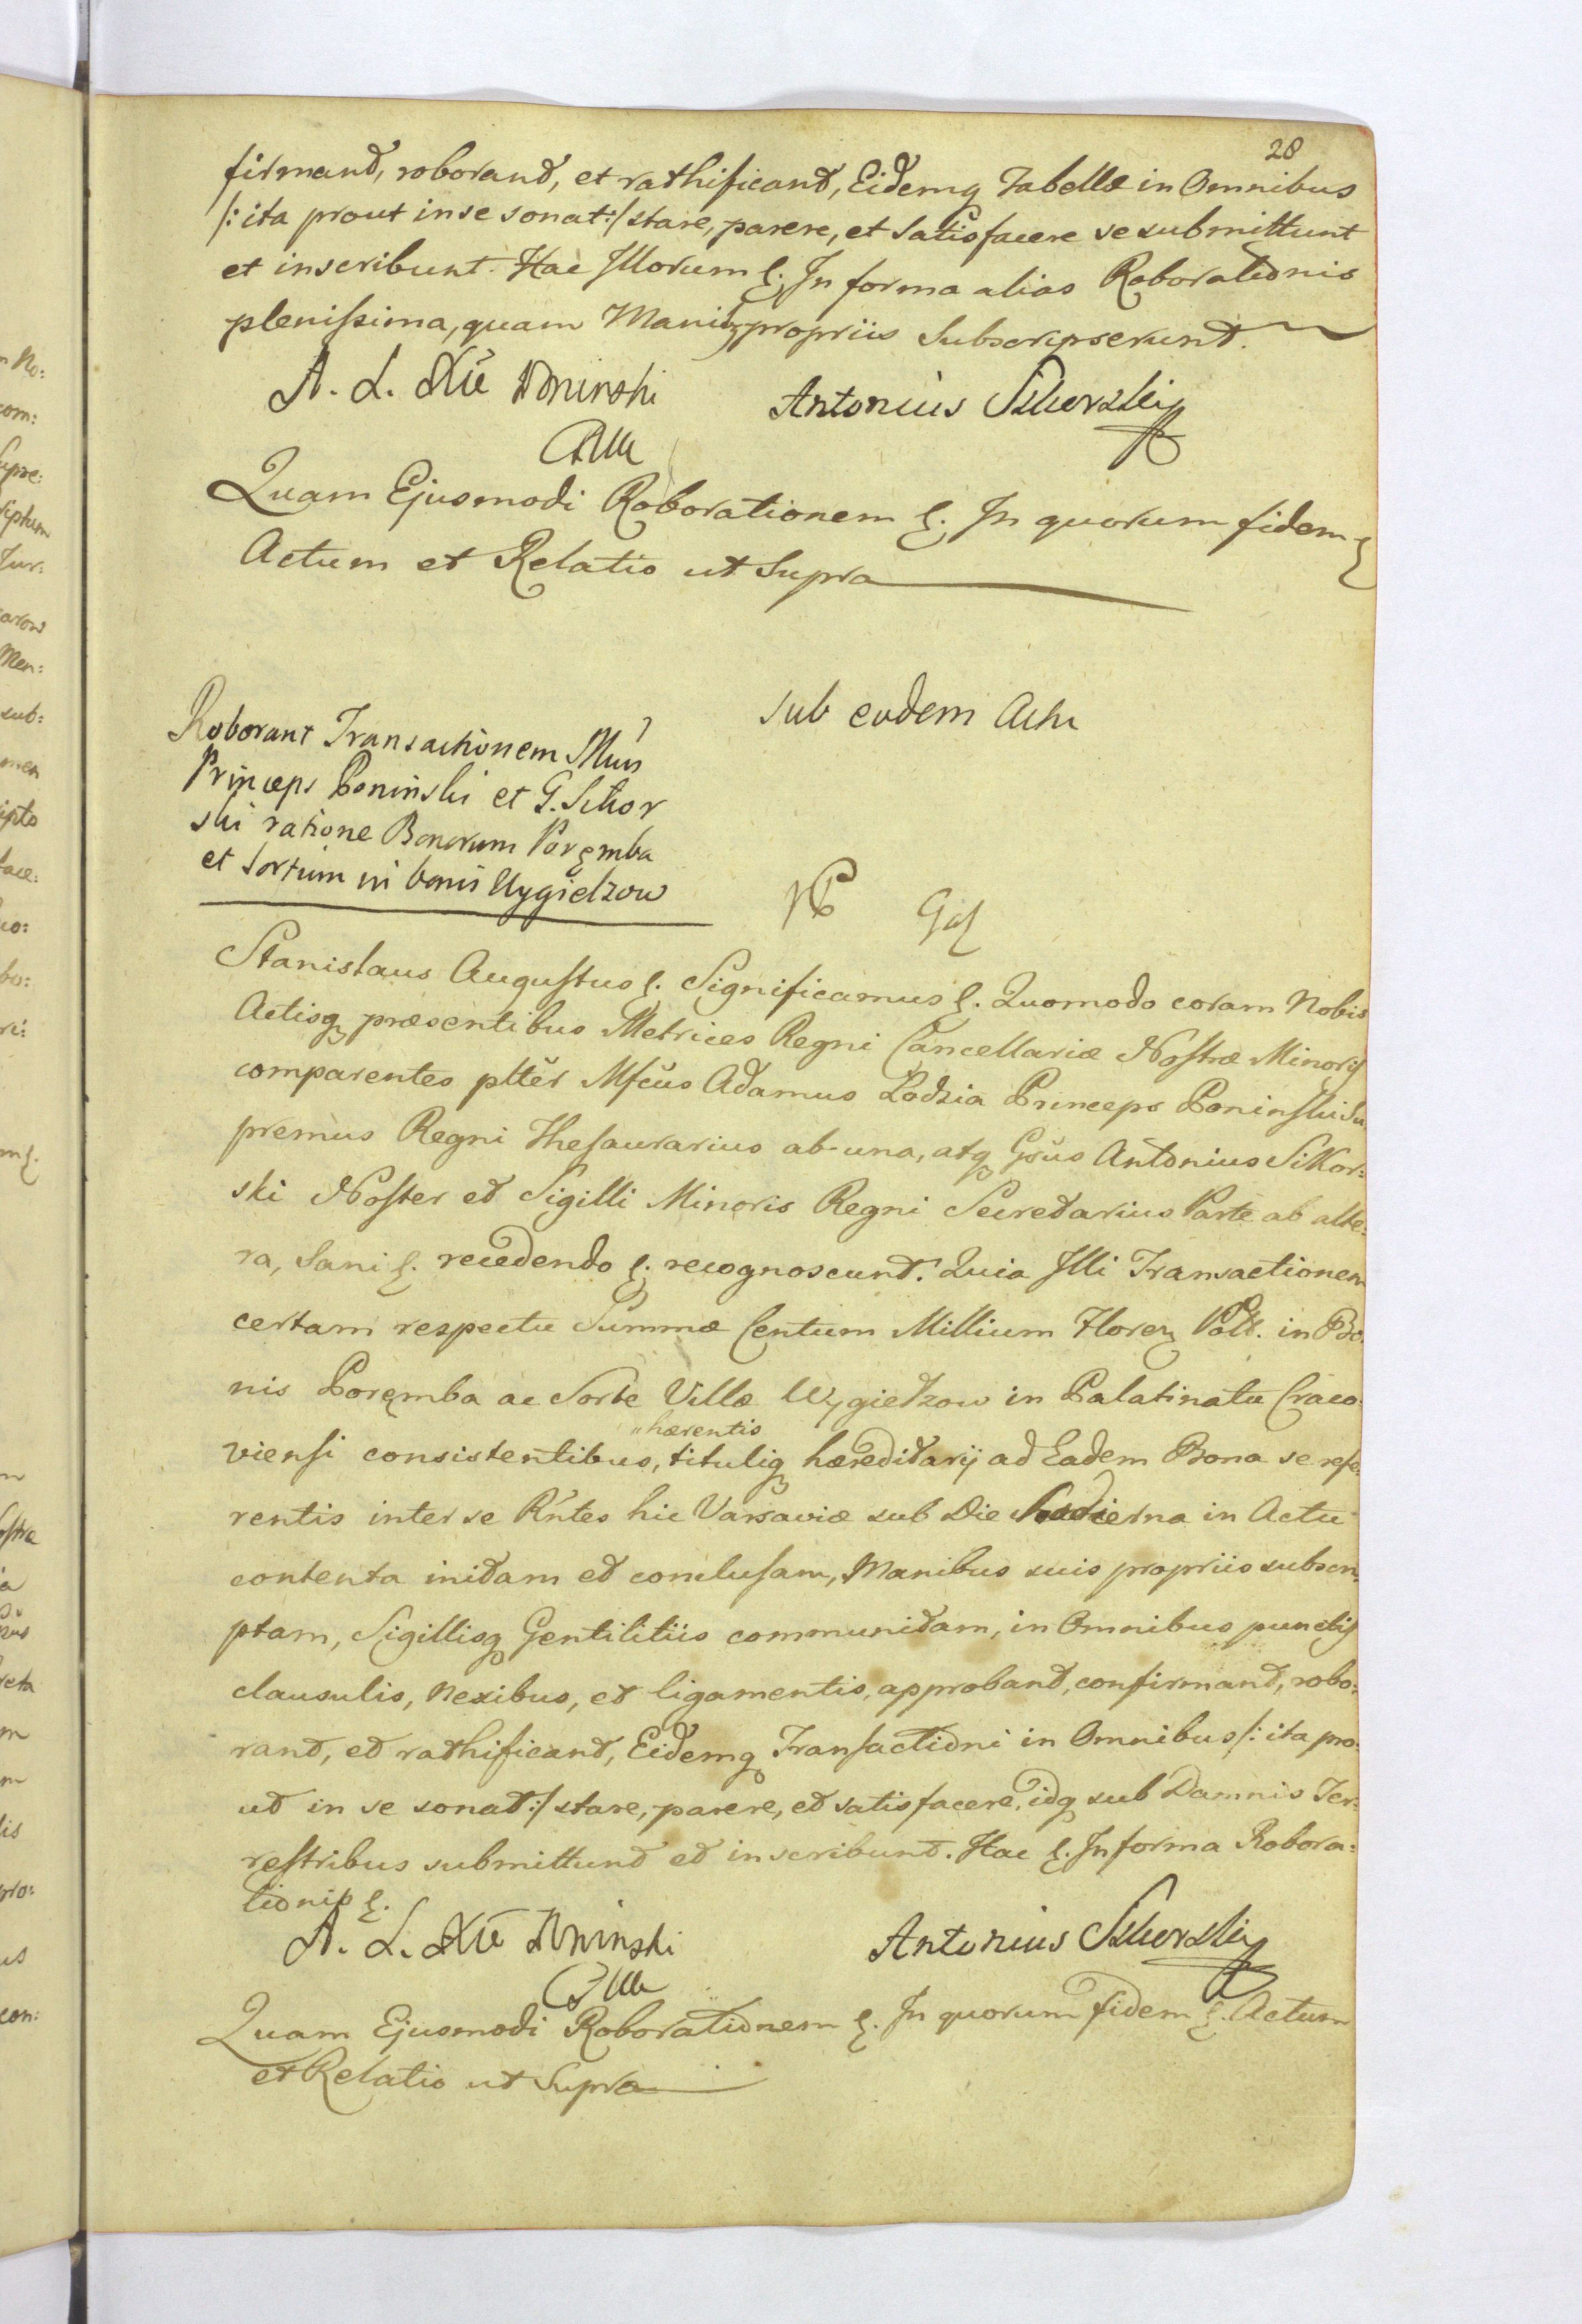 28
firmand, roborand, et rathificand, Eidemq Tabellæ in Omnibus
/: ita prout in se sonat :/ stare, parere, et Satisfacere se submittunt
et inscribunt. Hac Illorum &. In forma alias Roborationis
plenissima, quam Manibq propriis Subscripserunt.
A. L. Xże Poninski Antonius Sikorski
Quam Ejusmodi Roborationem &. In quorum fidem &
Actum et Relatio ut Supra
sub eodem Actu
Roborant Transactionem
Princeps Poninski et G. Sikor
ski ratione Bonorum Poręmba
et Sortium in bonis Wygiełzow
Stanislaus Augustus &. Significamus &. Quomodo coram Nobis
Actisq præsentibus Metrices Regni Cancellariæ Nostræ Minoris
comparentes pltter Mfcus Adamus Lodzia Princeps Poninski Su
premus Regni Thesaurarius ab-una, atq Gsus Antonius Sikor:
ski Noster et Sigilli Minoris Regni Secretarius Parte ab alte:
ra, Sani &. recedendo &. recognoscunt. Quia Illi Transactionem
certam respectu Summæ Centum Millium Floren Poll. in Bo:
nis Poręmba ac Sorte Villæ Wygiełzow in Palatinatu Craco:
"hærentis
viensi consistentibus, tituliq hæreditarij ad Eadem Bona se refe:
rentis inter se Rntes hic Varsaviæ sub Die hodierna in Actu
contenta initam et conclusam, Manibus suis propriis subscri:
ptam, Sigillisq Gentilitiis communitam, in Omnibus punctis
clausulis, Nexibus, et ligamentis, approband, confirmand, robo:
rand, et rathificand, Eidemq Transactioni in Omnibus /: ita pro:
ut in se sonat :/ stare, parere, et satisfacere, idq sub Damnis Ter:
restribus submittunt et inscribunt. Hac &. In forma Robora:
tionis &.
A. L. Xże Poninski Antonius Sikorski
Quam Ejusmodi Roborationem &. In quorum fidem &. Actum
et Relatio ut Supra